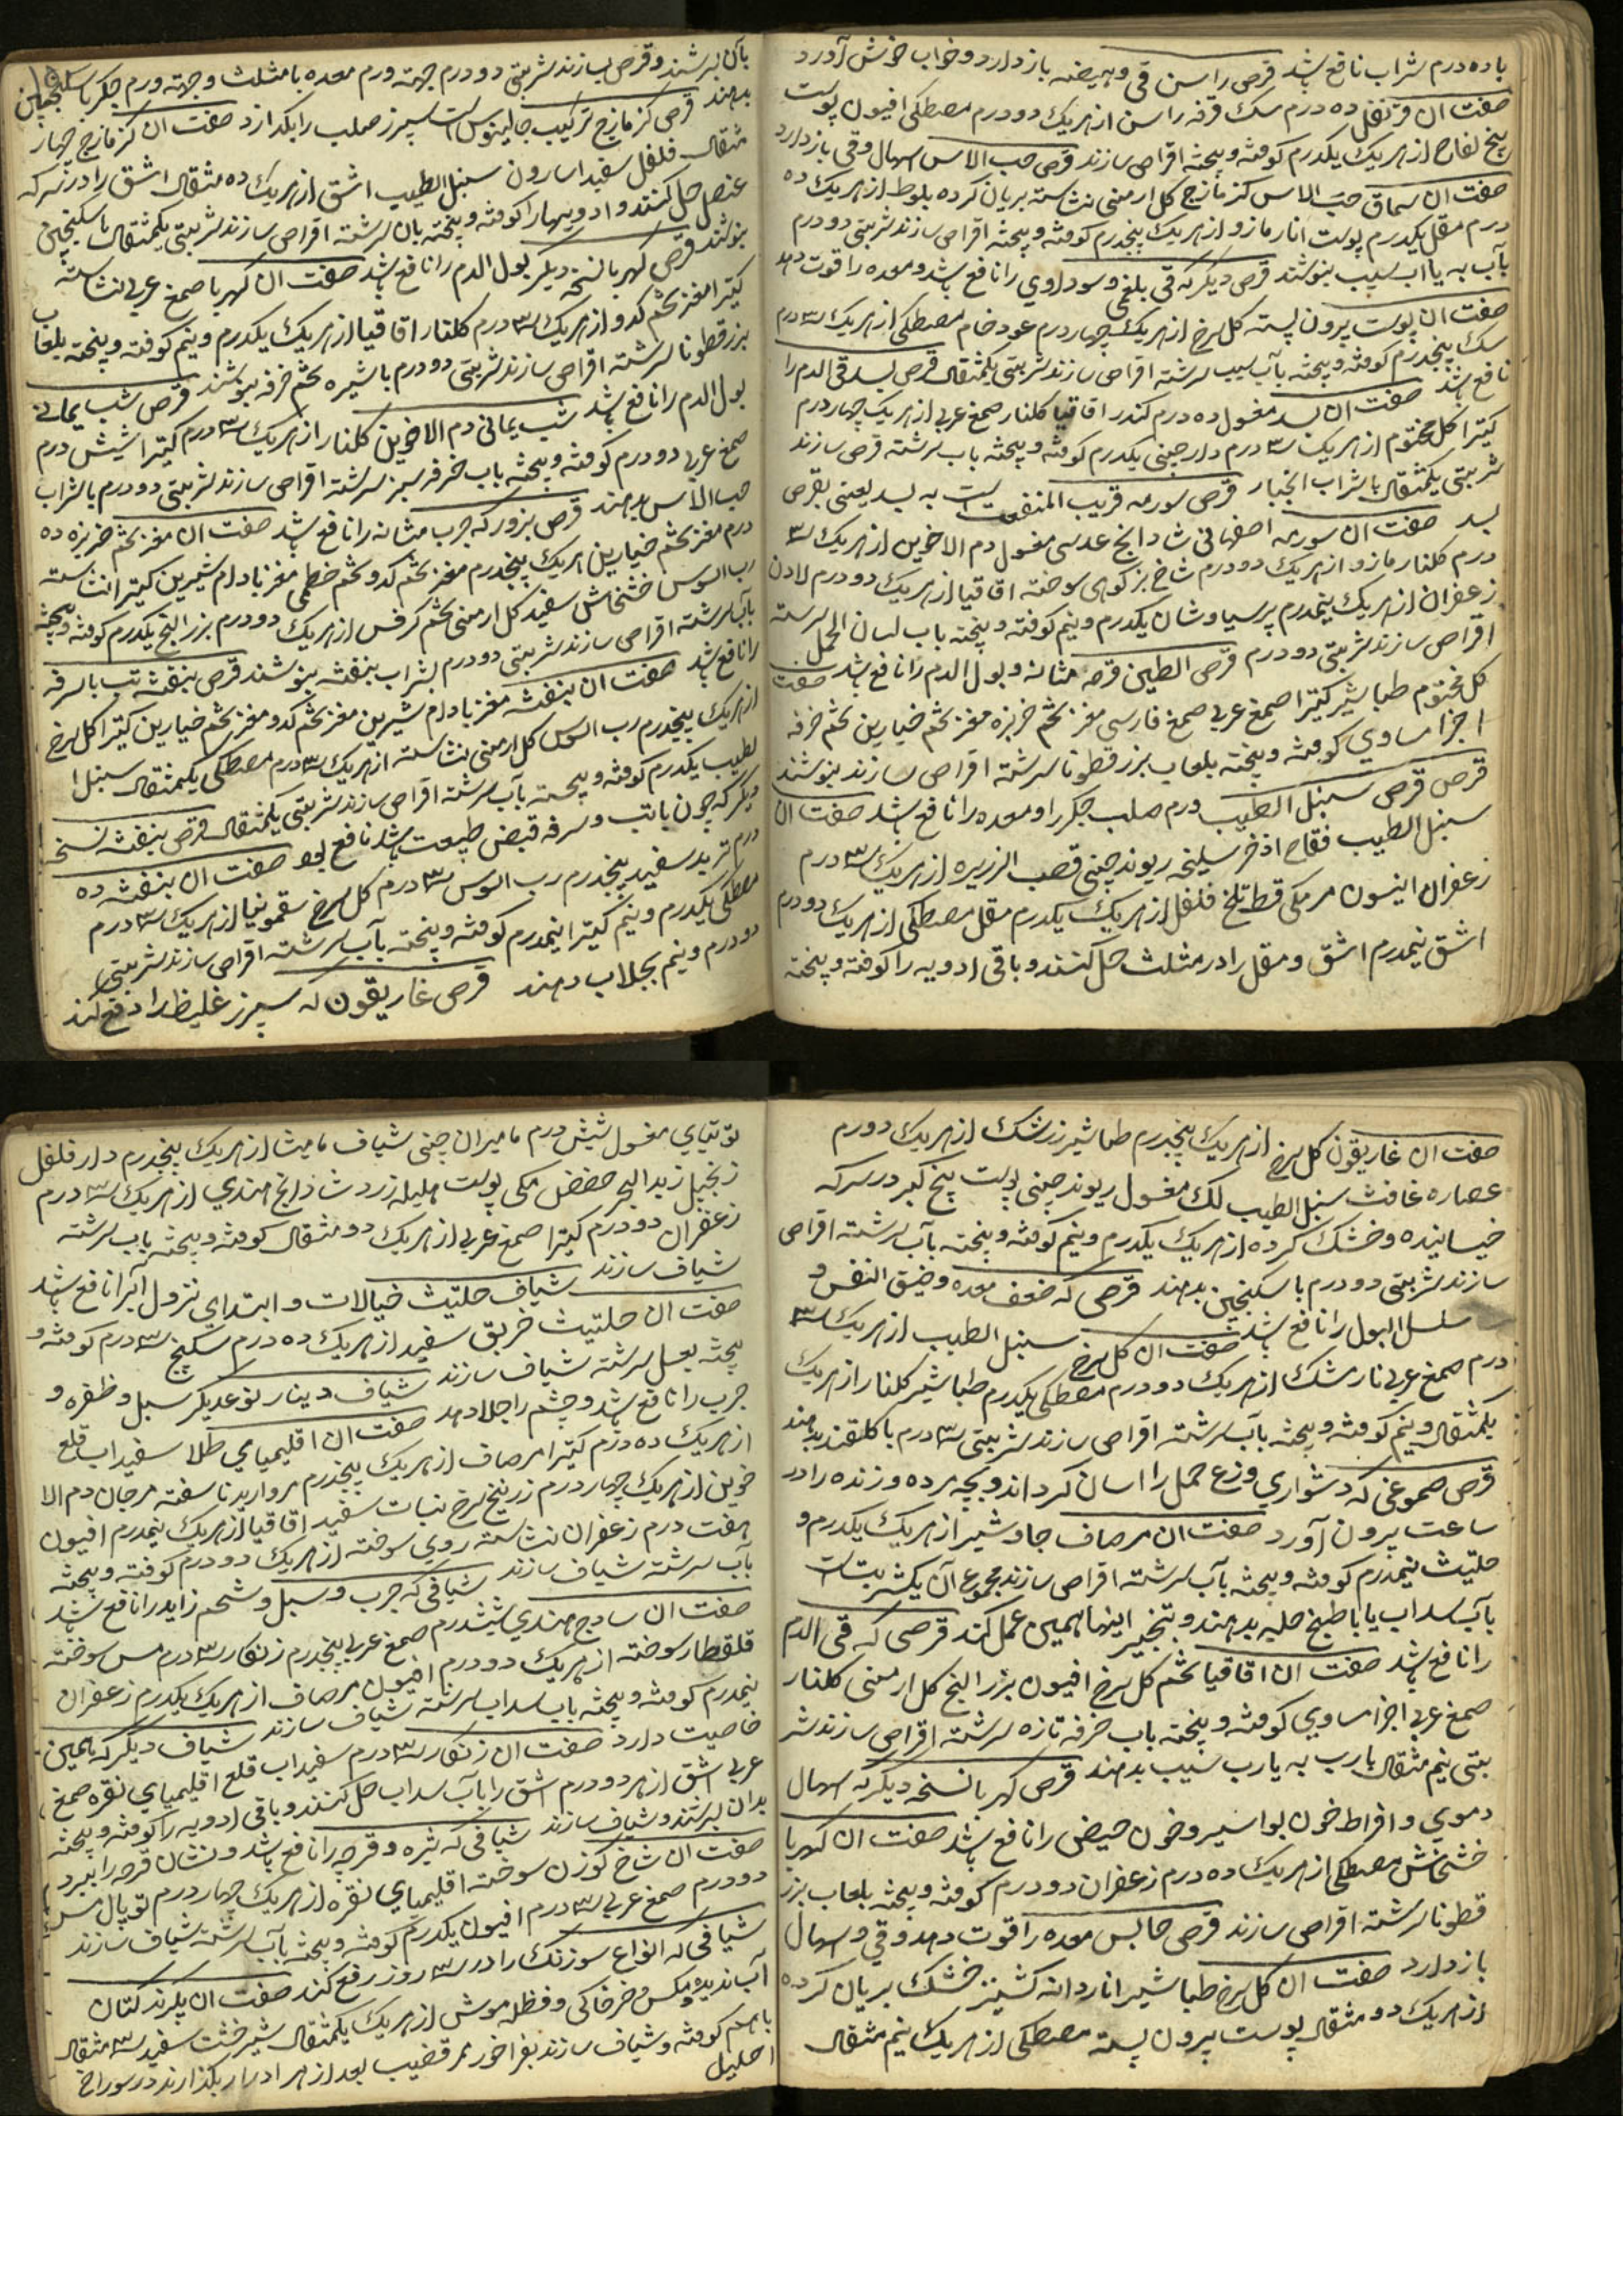 باده درم شراب نافع باشد قرص راسن قی و هیضه باز دارد و خواب خوش آورد
صفت ان قرنفل ده درم سک قرفه راسن از هریک دو درم مصطکی افیون پوست
بیخ لفاح از هریک یکدرم کوفته و بیخته اقراص سازند قرص حب الاس اسهال و قی باز دارد
صفت ان سماق حب الاس کزمازج کل ارمنی نشاسته بریان کرده بلوط از هریک ده
درم مقل یکدرم پوست انار مازو از هریک پنجدرم کوفته و بیخته اقراص سازند شربتی دو درم
بآب به یا اب سیب بنوشند قرص دیگر که قی بلغمی و سوداوي را نافع باشد و معده را قوت دهد
صفت ان پوست بیرون پسته کل سرخ از هریک چهار درم عود خام مصطکی از هریک ۳ درم
سک پنجدرم کوفته و بیخته بآب سیب سرشته اقراص سازند شربتی یکمثقال قرص بسد قی الدم را
نافع باشد صفت ان بسد مغسول ده درم کندر اقاقیا کلنار صمغ عربی از هریک چهار درم
کتیرا کل مختوم از هریک ۳ درم دارچینی یکدرم کوفته و بیخته باب سرشته قرص سازند
شربتی یکمثقال با شراب انجبار قرص سورمه قریب المنفعت است به بسد یعنی بقرص
بسد صفت ان سورمه اصفهانی شادانج عدسی مغسول دم الاخوین از هریک ۳
درم کلنار مازو از هریک دو درم شاخ بزکوهی سوخته اقاقیا از هریک دو درم لادن
زعفران از هریک نیمدرم پرسیاوشان یکدرم و نیم کوفته و بیخته باب لسان الحمل سرسته
اقراص سازند شربتی دو درم قرص الطین قرحه مثانه و بول الدم را نافع باشد صفت
کل مختوم طباشیر کتیرا صمغ عربی صمغ فارسی مغز تخم خربزه مغز تخم خیارین تخم خرفه
اجزا مساوي کوفته و بیخته بلعاب بزرقطونا سرشته اقراص سازند بنوشند
قرص قرص سنبل الطیب ورم صلب جکر را و معده را نافع باشد صفت ان
سنبل الطیب فقاح اذخر سلیخه ریوند چینی قصب الزریره از هریک ۳ درم
زعفران انیسون مر مکی قسط تلخ فلفل از هریک یکدرم مقل مصطکی از هریک دو درم
اشق نیمدرم اشق و مقل را در مثلث حل کنند و باقی ادویه را کوفته و بیخته
بآن بسرشند و قرص سازند شربتی دو درم جهة ورم معده با مثلث و جهة ورم جکر با سکنجبین
بدهند قرص کزمازج ترکیب جالینوس است سپرز صلب را بکدازد صفت ان کزمازج چهار
مثقال فلفل سفید اسارون سنبل الطیب اشق از هریک ده مثقال اشق را در سرکه
عنصل حل کنند و ادویهارا کوفته و بیخته بان سرشته اقراص سازند شربتی یکمثقال با سکنجبین
بنوشند قرص کهربا نسخه دیکر بول الدم را نافع باشد صفت ان کهربا صمغ عربی نشاسته
کتیرا مغز تخم کدو از هریک ۳ درم کلنار اقاقیا از هریک یکدرم و نیم کوفته و بیخته بلعاب
بزرقطونا سرشته اقراص سازند شربتی دو درم با شیره تخم خرفه بنوشند قرص شب یمانی
بول الدم را نافع باشد شب یمانی دم الاخوین کلنار از هریک ۳ درم کتیرا شیش درم
صمغ عربی دو درم کوفته و بیخته باب خرفه سبز سرشته اقراص سازند شربتی دو درم با شراب
حب الاس بدهند قرص بزور که جرب مثانه را نافع باشد صفت ان مغز تخم خربزه ده
درم مغز تخم خیارین از هریک پنجدرم مغز تخم کدو تخم خطمی مغز بادام شیرین کتیرا نشاسته
رب السوس خشخاش سفید کل ارمنی تخم کرفس از هریک دو درم بزر البنج یکدرم کوفته و بیخته
بآب سرشته اقراص سازند شربتی دو درم بشراب بنفشه بنوشند قرص بنفشه تب با سرفه
را نافع باشد صفت ان بنفشه مغز بادام شیرین مغز تخم کدو مغز تخم خیارین کتیرا کل سرخ
از هریک پنجدرم رب السوس کل ارمنی نشاسته از هریک ۳ درم مصطکی یکمثقال سنبل ا
لطیب یکدرم کوفته و بیخته بآب سرشته اقراص سازند شربتی یکمثقال قرص بنفشه نسخه
دیکر که چون باتب و سرفه قبض طبیعت باشد نافع بود صفت ان بنفشه ده
درم تربد سفید پنجدرم رب السوس ۳ درم کل سرخ سقمونیا از هریک ۳ درم
مصطکی یکدرم و نیم کتیرا نیمدرم کوفته و بیخته بآب سرشته اقراص سازند شربتی
دو درم و نیم بجلاب دهند قرص غاریقون که سپرز غلیظ را دفع کند
صفت ان غاریقون کل سرخ از هریک پنجدرم طباشیر زرشک از هریک دو درم
عصاره غافث سنبل الطیب لک مغسول ریوند چینی پوست بیخ کبر در سرکه
خیسانیده و خشک کرده از هریک یکدرم و نیم کوفته و بیخته بآب سرشته اقراص
سازند شربتی دو درم با سکنجبین بدهند قرصی که ضعف معده و ضیق النفس و
سلسل البول را نافع باشد صفت ان کل سرخ سنبل الطیب از هریک ۳
درم صمغ عربی نارمشک از هریک دو درم مصطکی یکدرم طباشیر کلنار از هریک
یکمثقال و نیم کوفته و بیخته بآب سرشته اقراص سازند شربتی ۳ درم با کلقند بدهند
قرص صموغی که دشواري وزع حمل را اسان کرداند و بچه مرده و زنده را در
ساعت بیرون آورد صفت ان مرصاف جاوشیر از هریک یکدرم و
حلتیت نیمدرم کوفته و بیخته بآب سرشته اقراص سازند مجموع آن یکشربت است
بآب سداب یا با طبیخ حلبه بدهند و بتخیر اینها همین عمل کند قرصی که قی الدم
را نافع باشد صفت ان اقاقیا تخم کل سرخ افیون بزر البنج کل ارمنی کلنار
صمغ عربی اجزا مساوي کوفته و بیخته باب خرفه تازه سرشته اقراص سازند شر
بتی نیم مثقال بارب به یارب سیب بدهند قرص کهربا نسخه دیکر که اسهال
دموي و افراط خون بواسیر و خون حیض را نافع باشد صفت ان کهربا
خشخاش مصطکی از هریک ده درم زعفران دو درم کوفته و بیخته بلعاب بزر
قطونا سرشته اقراص سازند قرص حابس معده را قوت دهد و قی و اسهال
باز دارد صفت ان کل سرخ طباشیر اناردانه کشنیز خشک بریان کرده
از هریک دو مثقال پوست بیرون پسته مصطکی از هریک نیم مثقال
توتیاي مغسول شیش درم مامیران چینی شیاف مامیثا از هریک پنجدرم دارفلفل
زنجبیل زبد البحر حضض مکی پوست هلیله زرد شادانج هندي از هریک ۳ درم
زعفران دو درم کتیرا صمغ عربی از هریک دو مثقال کوفته و بیخته باب سرشته
شیاف سازند شیاف حلتیت خیالات و ابتداي نزول آبرا نافع باشد
صفت ان حلتیت خربق سفید از هریک ده درم سکبینج ۳ درم کوفته و
بیخته بعسل سرشته شیاف سازند شیاف دینار نوعدیکر سبل و ظفره و
جرب را نافع باشد و چشم را جلا دهد صفت ان اقلیمیاي طلا سفیداب قلع
از هریک ده درم کتیرا مرصاف از هریک پنجدرم مروارید ناسفته مرجان دم الا
خوین از هریک چهار درم زرنیخ سرخ نبات سفید اقاقیا از هریک نیمدرم افیون
هفت درم زعفران نشاسته روي سوخته از هریک دو درم کوفته و بیخته
بآب سرشته شیاف سازند شیافی که جرب و سبل و شحم زاید را نافع باشد
صفت ان سادج هندي شیشدرم صمغ عربی پنجدرم زنکار ۳ درم مس سوخته
قلقطار سوخته از هریک دو درم افیون مرصاف از هریک یکدرم زعفران
نیمدرم کوفته و بیخته باب سداب سرشته شیاف سازند شیاف دیکر که همین
خاصیت دارد صفت ان زنکار ۳ درم سفیداب قلع اقلیمیاي نقره صمغ
عربی اشق از هر دو درم اشق را بآب سداب حل کنند و باقی ادویه را کوفته و بیخته
بدان بسرشند و شیاف سازند شیافی که بثره و قرحه را نافع باشد و نشان قرحه را ببرد
صفت ان شاخ کوزن سوخته اقلیمیاي نقره از هریک چهار درم توپال مس
دو درم صمغ عربی ۳ درم افیون یکدرم کوفته و بیخته بآب سرشته شیاف سازند
شیافی که انواع سوزنک را در ۳ روز رفع کند صفت ان پکرند کتان
آب ندیده و مکس و خرخاکی و فظله موش از هریک یکمثقال شیرخشت سفید ۳ مثقال
باهم کوفته و شیاف سازند بفراخور ممر قضیب بعد از هر ادرار بکذارند در سوراخ
احلیل